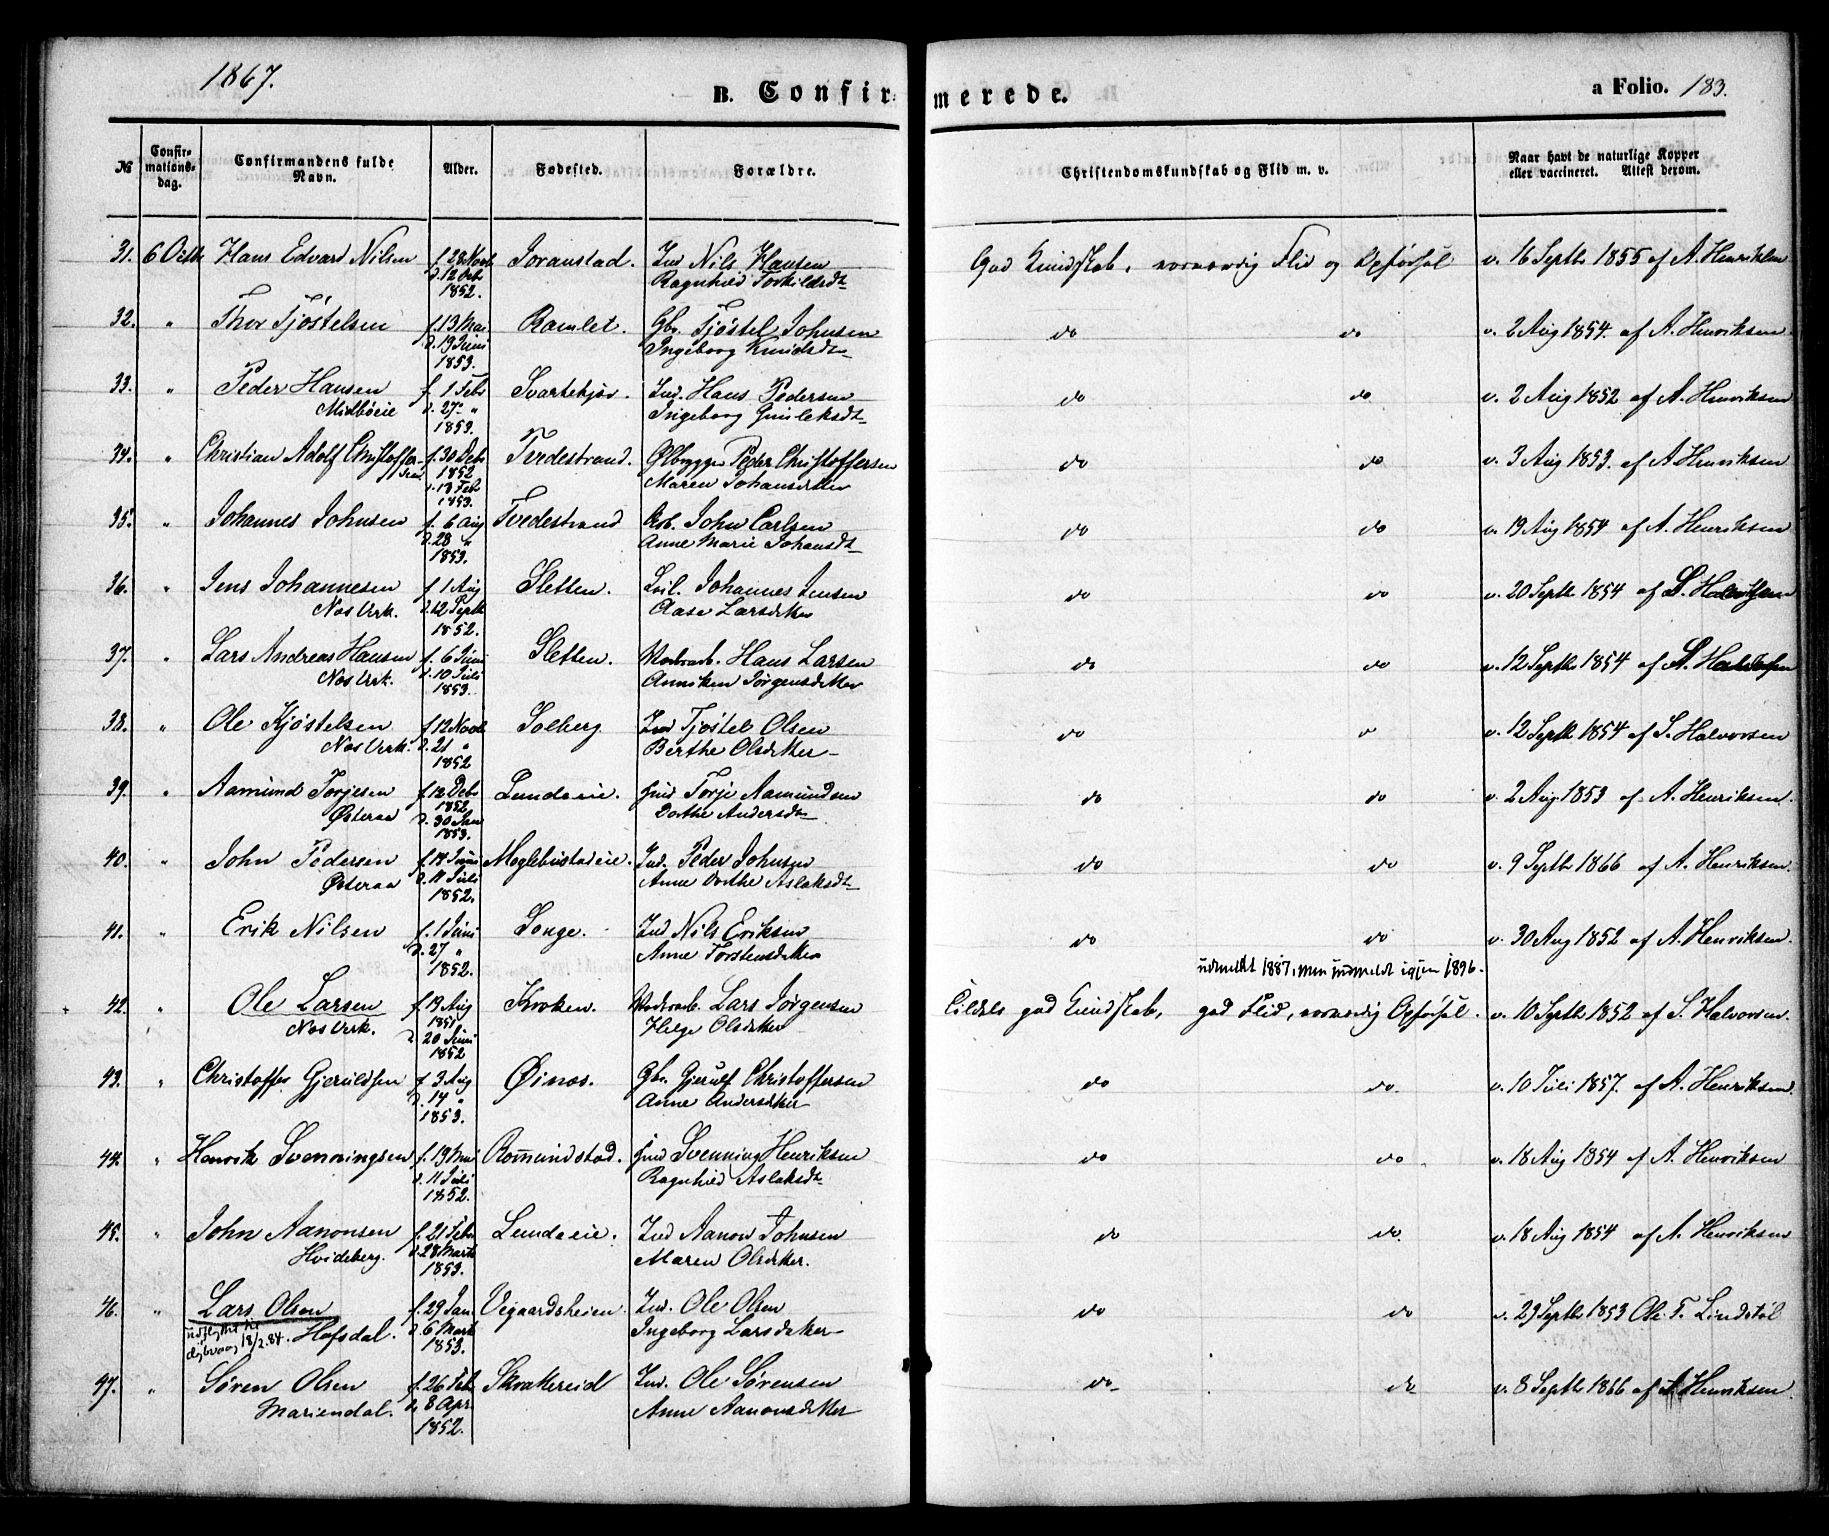 1867.
B. Confirmerede.
a Folio. 183.
№ Confirmationsdag. Confirmandens fulde Navn. Alder. Fødested. Forældre. Christendomskundskab og Flid m. v. Naar havt de naturlige Kopper eller vaccineret. Attest derom.
31. 6 Octb Hans Edvard Nilsen f. 28 Novb Soranstad. Ind Nils Hansen God Kundskab, Flid og Opførsel v. 16 Septb 1855 af A. Henriksen
d. 12 Dcb Ragnhild Torkildsdt
1852.
32. " Thor Tjøstelsen f. 13 Mai Ramlet. Gbr. Tjøstel Johnsen do do v. 2 Aug 1854. af A. Henriksen.
d. 19 Juni Ingeborg Knudsdt
1853.
33. " Peder Hansen f. 1 Feb Svartekjær Ind. Hans Pedersen do do v. 2 Aug 1852 af A. Henriksen
Midbøeie d. 27 " Ingeborg Gunleksdt
1853.
34. " Christian Adolf Christoffersen f. 30 Deb Tvedestrand. Peder Christoffersen do do v. 3 Aug 1853. af A. Henriksen
1852 Maren Johansdtter
d. 13 Feb
1853.
35. " Johannes Johnsen f. 6 Aug Tvedestrand Arb. John Carlsen do do v. 19 Aug 1854 af A. Henriksen
d. 28 " Anne Marie Johansdt
1853.
36. " Jens Johannesen f. 1 Aug Sletten. Johannes Jensen do do v. 20 Septb 1854 af S. Halvorsen
Næs Verk. d. 12 Septb Aase Larsdtter
1852.
37. " Lars Andreas Hansen f. 6 Juni Sletten. Værksarb. Hans Larsen do do v. 12 Septb 1854 af S. Halvorsen
Næs Verk. d. 10 Juli Anniken Jørgensdtter
1853.
38. " Ole Kjøstelsen f. 12 Novb Solberg Ind Tjøstel Olsen do do v. 12 Septb 1854 af S. Halvorsen
Næs Verk. d. 21 " Berthe Olsdtter
1852
39. " Aamund Torjesen f. 12 Deb Lundeeie. Ind Torje Aamundsen do do v. 2 Aug 1853 af A. Henriksen.
Østeraa 1852 Dorthe Andersdt
d. 30 Jan
1853.
40. " John Pedersen f. 14 Juni Møglebustadeie. Ind. Peder Johnsen do do v. 9 Septb 1866 af A. Henriksen.
Østeraa d. 11 Juli Anne Dorthe Aslaksdt
1852.
41. " Erik Nilsen f. 1 Juni Songe. Ind Nils Eriksen do do v. 30 Aug 1852 af A. Henriksen.
d. 27 " Anne Torstensdtter
1852.
udmeldt 1887, men indmeldt igjen 1896.
42. " Ole Larsen f. 19 Aug Kroken. Værksarb. Lars Jørgensen Tildels god Kundskab, god Flid, Opførsel. v. 10 Septb 1852 af S. Halvorsen.
Næs Verk. 1851 Helge Olsdtter
d. 20 Juni
1852
43. " Christoffer Gjerulfsen f. 3 Aug Øinæs. Gbr. Gjerulf Christoffersen do do v. 10 Juli 1857. af A. Henriksen.
d. 14 " Anne Andersdtter
1853.
44. " Henrik Svenningsen f. 19 Mai Romundstad. Ind Svenning Henriksen do do v. 18 Aug 1854 af A. Henriksen
d. 11 Juli Ragnhild Aslaksdt
1852.
45. " John Aanonsen f. 21 Feb Lundeeie. Ind Aanon Johnsen do do v. 18 Aug 1854 af A. Henriksen
Hvideberg. d. 28 Marts Maren Olsdtter.
1853.
46. " Lars Olsen f. 29 Jan. Vegaardsheien. Ind. Ole Olsen do do v. 29 Septb 1853 Ole T. Lindstøl
udflyttet til 18/2.84. Hafsdal. d. 6 Marts Ingeborg Larsdtter
1853.
47. " Søren Olsen f. 26 Feb Skvattereid Ind. Ole Sørensen do do v. 8 Septb 1866 af A. Henriksen.
Mariendal. d. 8 Apr. Anne Aanonsdtter
1852.